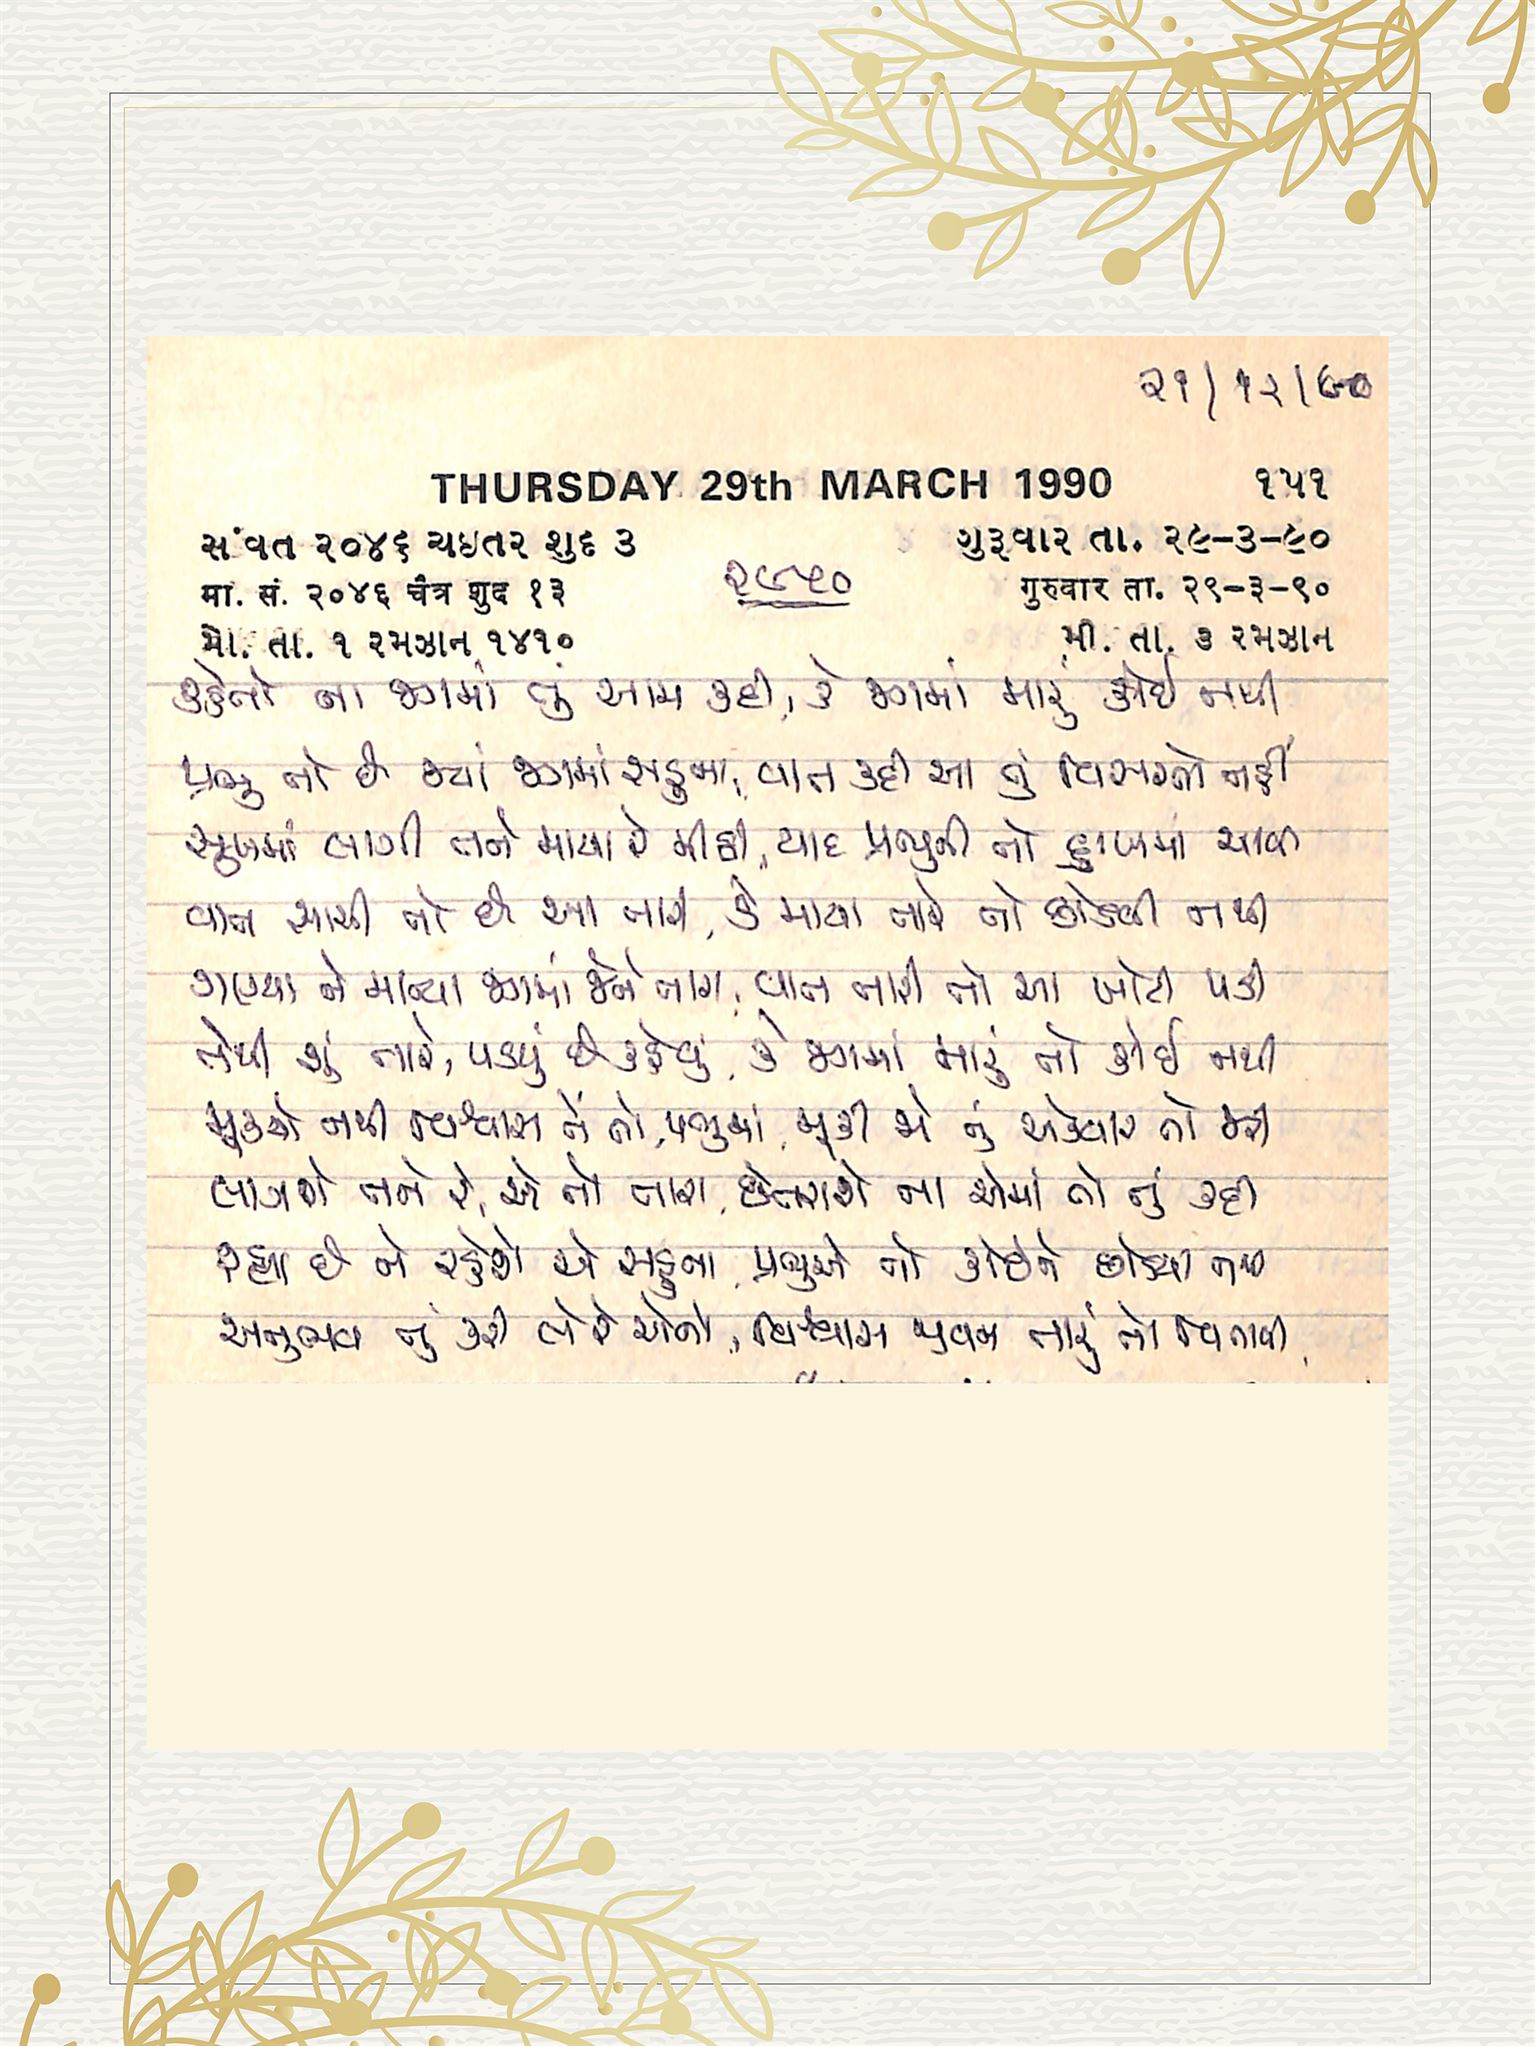 ૨૧/૧૨/૯૦
THURSDAY 29th MARCH 1990 ૧૫૧
સંવત ૨૦૪૬ ચઇતર શુદ ૩ ગુરૂવાર તા. ૨૯-૩-૯૦
૨૯૧૦
मा. सं. २०४६ चैत्र शुद १३ गुरुवार ता. २९-३-९०
મો. તા. ૧ રમઝાન ૧૪૧૦ મી. તા. ૩ રમઝાન
કહેતો ના જગમાં તું આમ કદી, કે જગમાં મારું કોઈ નથી
પ્રભુ તો છે જ્યાં જગમાં સહુના, વાત કદી આ તું વિસરતો નહીં
સુખમાં લાગી તને માયા રે મીઠી, યાદ પ્રભુની તો દુઃખમાં આવી
વાત સાચી તો છે આ તારી, કે માયા તારે તો છોડવી નથી
ગણ્યા ને માન્યા જગમાં જેને તારા, વાત તારી તો આ ખોટી પડી
તેથી શું તારે, પડયું છે કહેવું, કે જગમાં મારું તો કોઈ નથી
મૂકયો નથી વિશ્વાસ તેં તો, પ્રભુમાં, મૂકી જો તું એકવાર તો જરી
લાગશે તને રે, એ તો તારા, છેતરાશે ના એમાં તો તું કદી
રહ્યા છે ને રહેશે એ સહુના, પ્રભુએ તો કોઈને છોડયા નથી
અનુભવ તું કરી લે રે એનો, વિશ્વાસ જીવન તારું તો વિતાવી